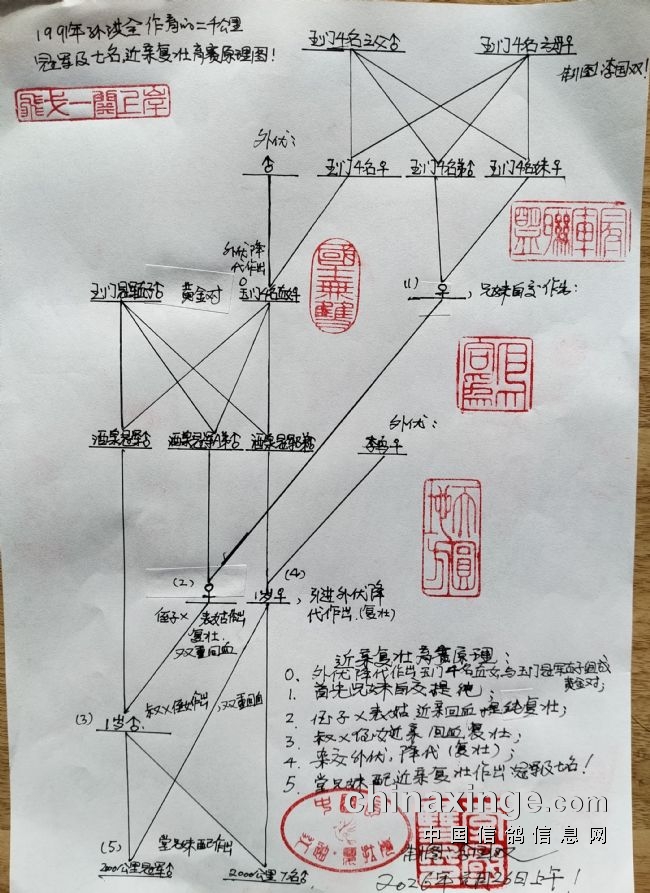 1991年环洪全作育的二千公里
冠军及七名,近亲复壮育赛原理图!
玉门4名之父♂
玉门4名之母♀
制图:李国双!
外优:
♂
玉门4名♀
玉门4名弟♂
玉门4名妹♀
外优降
代作出
玉门冠军孟子♂
黄金对
玉门4名血女♀
(1)
♀,兄妹自交作出:
酒泉冠军♂
酒泉冠军A弟♂
酒泉冠军B弟♂
外优:
李鸟♀
(2)
♀
侄子×表姑作出
复壮.
双重回血
(4)
1岁♀,引进外优降
代作出.(复壮)
(3)
1岁♂
叔×侄女作出,双重回血
近亲复壮育赛原理:
0、外优降代作出玉门4名血女,与玉门冠军孟子组成
黄金对;
1、首先兄妹自交提纯;
2、侄子×表姑近亲回血提纯复壮;
3、叔×侄女近亲回血复壮;
4、杂交外优,降代(复壮);
5、堂兄妹配近亲复壮作出冠军及七名!
(5)
堂兄妹配作出
2000公里冠军♂
2000公里7名♂
chinaxinge.com
中国信鸽信息网
2026年
26日上午!